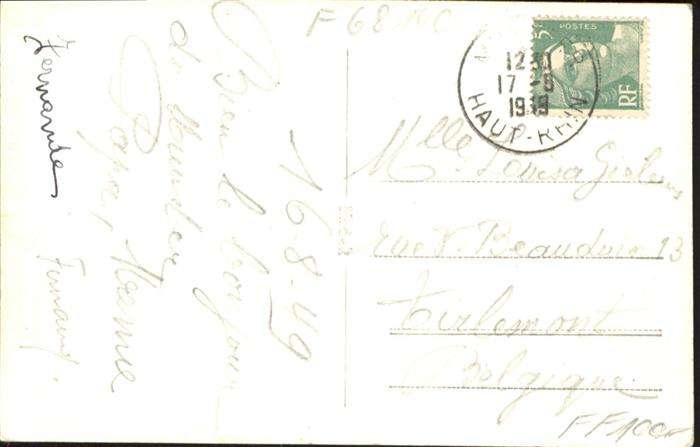 F 68
16-8-49
Bien le bonjour
de Munster
Papa, Maman
Fernand.
Fernande
5F
POSTES
RF
12 30
17 -8
19
HAUT-RHIN
Mlle Louisa
rue V. Beauduin 13
Tirlemont
Belgique
FF